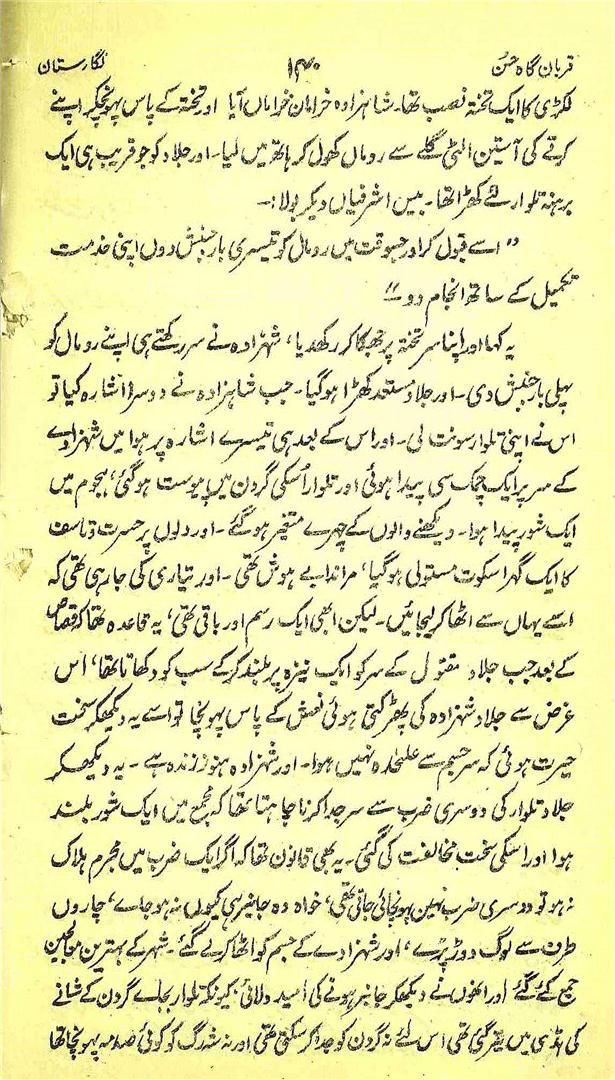 قربان گاہ حسن ۱۴۰ نگارستان
لکڑی کا ایک تختہ نصب تھا۔ شاہزادہ خراماں خراماں آیا اور تختہ کے پاس پہونچکر اپنے
کرتے کی آستین الٹی گلے سے رومال کھول کر ہاتھ میں لیا۔ اور جلاد کو جو قریب ہی ایک
برہنہ تلوار لئے کھڑا تھا۔ بیس اشرفیاں دیکر بولا:۔
”اسے قبول کر اور جسوقت میں رومال کو تیسری بار جنبش دوں اپنی خدمت
تکمیل کے ساتھ انجام دو“
یہ کہا اور اپنا سر تختہ پر جھکا کر رکھدیا، شہزادہ نے سر رکھتے ہی اپنے رومال کو
پہلی بار جنبش دی۔ اور جلاد مستعد کھڑا ہوگیا۔ جب شاہزادہ نے دوسرا اشارہ کیا تو
اس نے اپنی تلوار سونت لی۔ اور اس کے بعد ہی تیسرے اشارہ پر ہوا میں شہزادے
کے سر پر ایک چمک سی پیدا ہوئی اور تلوار اُسکی گردن میں پیوست ہوگئی، ہجوم میں
ایک شور پیدا ہوا۔ دیکھنے والوں کے چہرے متغیر ہوگئے۔ اور دلوں پر حسرت و تاسف
کا ایک گہرا سکوت مستولی ہوگیا، مراندا بے ہوش تھی۔ اور تیاری کی جارہی تھی کہ
اسے یہاں سے اٹھا کر لیجائیں۔ لیکن ابھی ایک رسم اور باقی تھی، یہ قاعدہ تھا کہ قصاص
کے بعد جب جلاد مقتول کے سر کو ایک نیزہ پر بلند کرکے سب کو دکھاتا تھا، اس
غرض سے جلاد شہزادہ کی پھڑکتی ہوئی نعش کے پاس پہونچا تو اسے یہ دیکھکر سخت
حیرت ہوئی کہ سر جسم سے علیحدہ نہیں ہوا۔ اور شہزادہ ہنوز زندہ ہے۔ یہ دیکھکر
جلاد تلوار کی دوسری ضرب سے سر جدا کرنا چاہتا تھا کہ مجمع میں ایک شور بلند
ہوا اور اسکی سخت مخالفت کی گئی۔ یہ بھی قانون تھا کہ اگر ایک ضرب میں مجرم ہلاک
نہ ہو تو دوسری ضرب نہیں پہونچائی جاتی تھی، خواہ وہ جانبر ہی کیوں نہ ہو جاے، چاروں
طرف سے لوگ دوڑ پڑے، اور شہزادے کے جسم کو اٹھا کر لے گئے۔ شہر کے بہترین معالجین
جمع کئے گئے اور انھوں نے دیکھکر جانبر ہونے کی امید دلائی، کیونکہ تلوار بجاے گردن کے شانے
کی ہڈی میں بیٹھ گئی تھی اس لئے نہ گردن کو جدا کر سکتی تھی اور نہ شہ رگ کو کوئی صدمہ پہونچا تھا